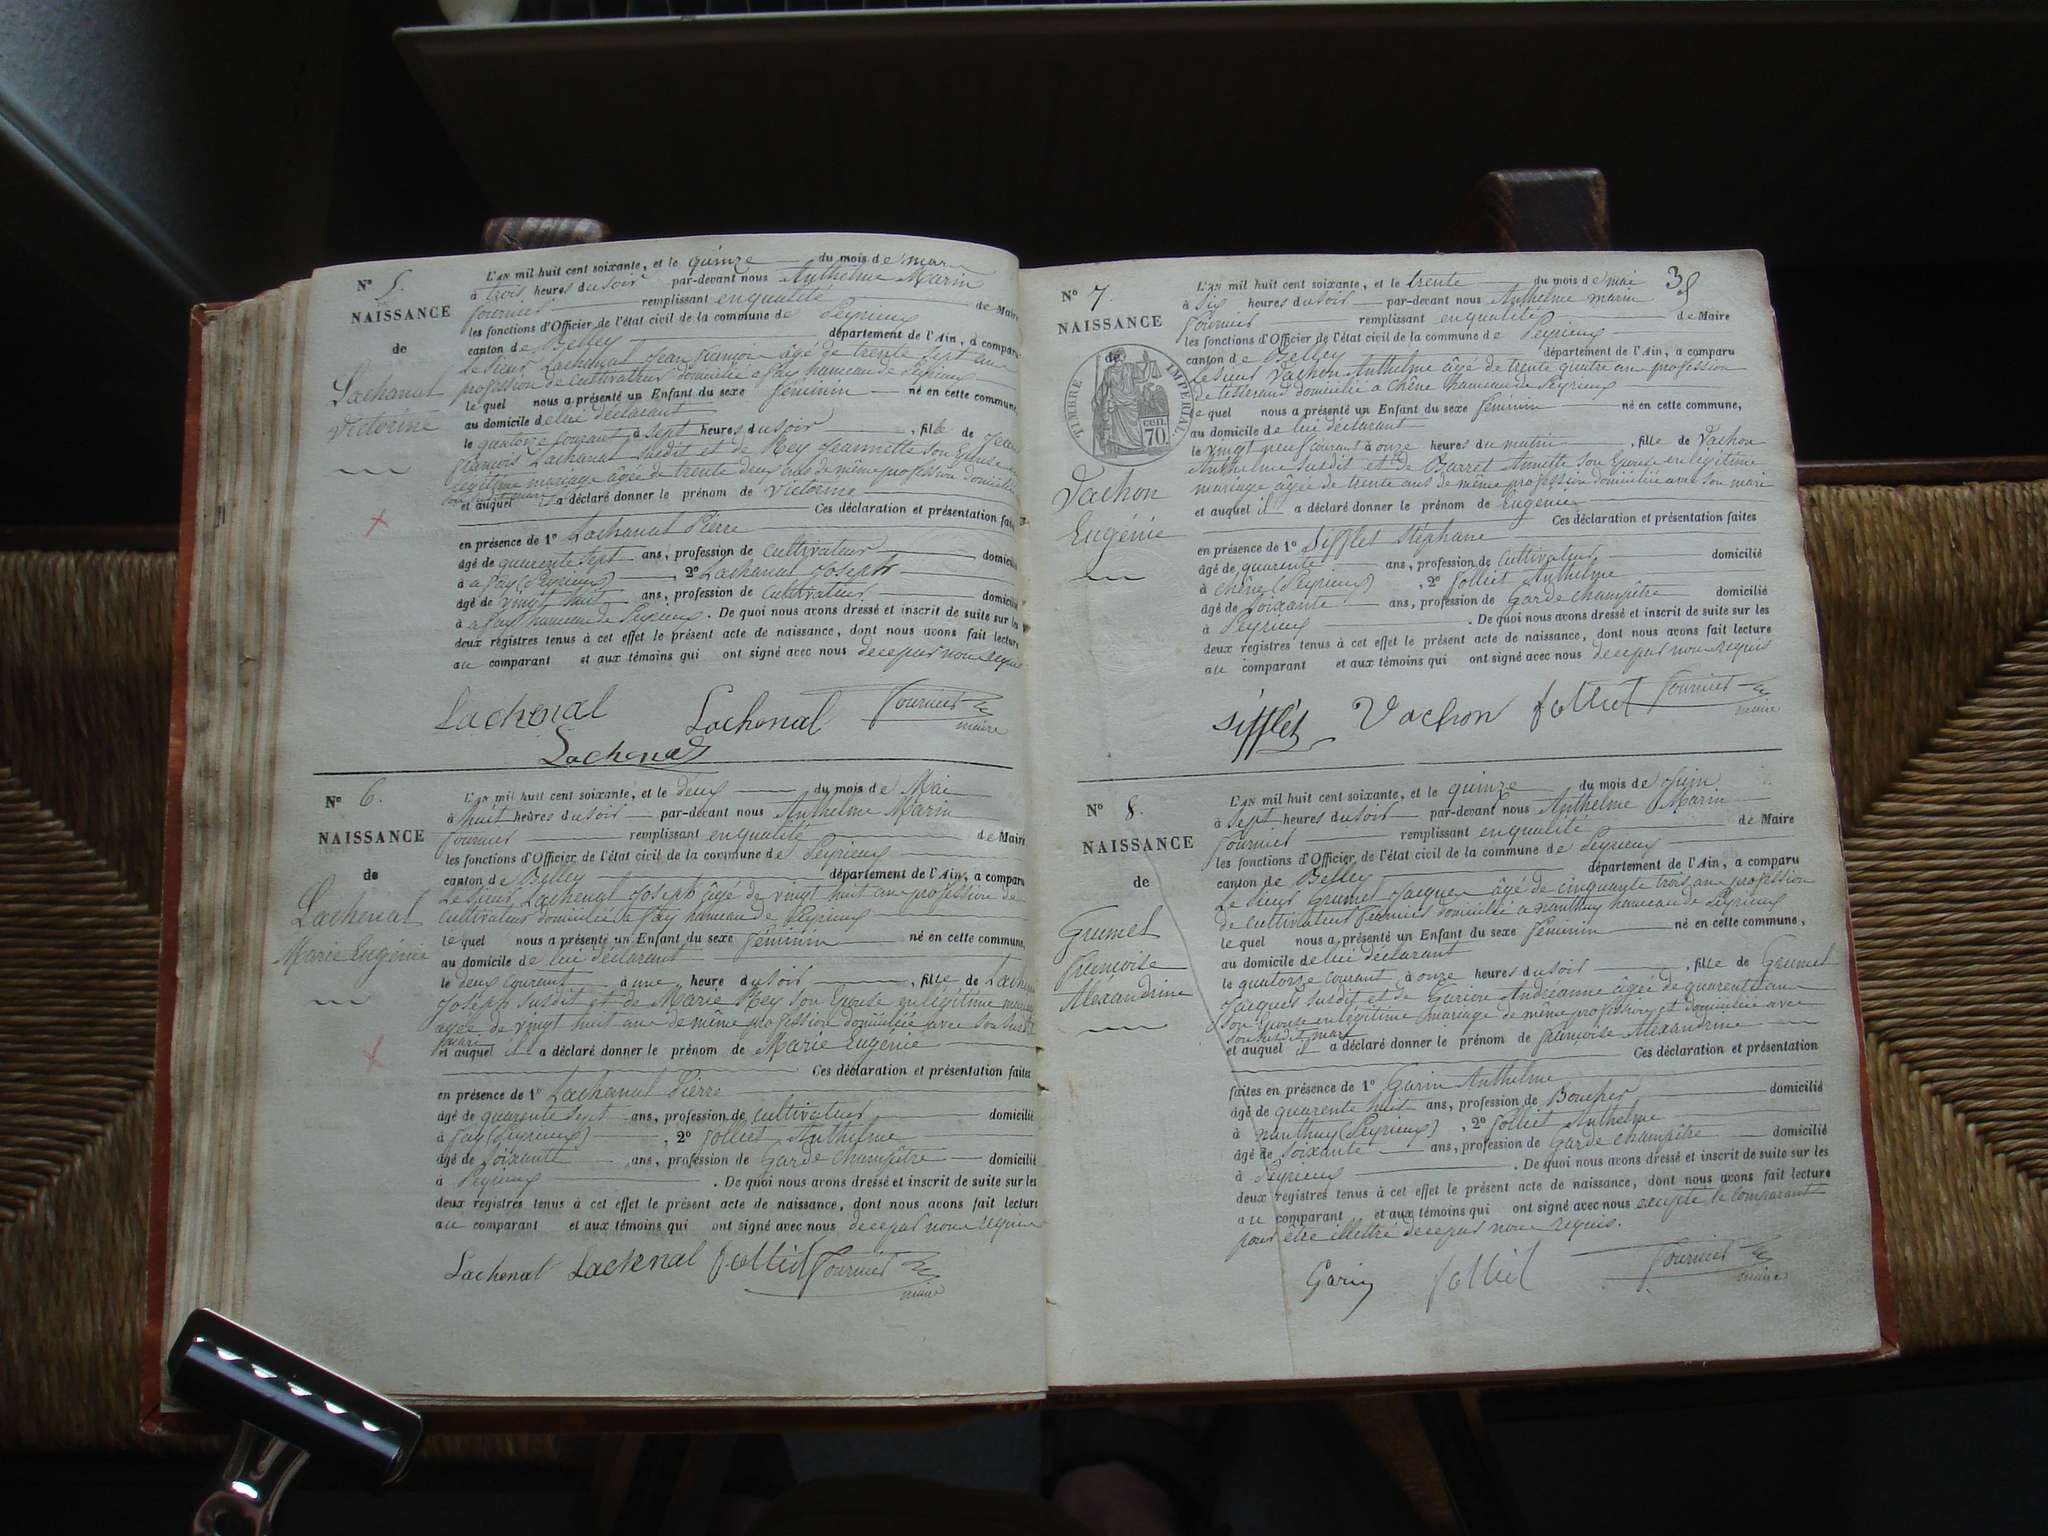 Nº 5.
NAISSANCE
de
Lachanal
Victorine
L'AN mil huit cent soixante, et le quinze du mois de mars
à trois heures du soir par-devant nous Anthelme Marin
Fournier remplissant en qualité de Maire
les fonctions d'Officier de l'état civil de la commune de Peyrieux
canton de Belley département de l'Ain, a comparu
le sieur Lachanal Jean françois âgé de trente sept ans
profession de cultivateur domicilié à fay hameau de Peyrieux
le quel nous a présenté un Enfant du sexe féminin né en cette commune,
au domicile de lui déclarant
le quatorze courant à sept heures du soir, fille de Jean
françois Lachanal susdit et de Rey Jeannette son Epouse en
légitime mariage âgée de trente deux ans de même profession domiciliée
son susdit mari
et auquel il a déclaré donner le prénom de Victorine
Ces déclaration et présentation faites
en présence de 1º Lachanal Pierre
âgé de quarente sept ans, profession de cultivateur domicilié
à a fay (Peyrieux), 2º Lachanal Joseph
âgé de vingt huit ans, profession de cultivateur domicilié
à a fay hameau de Peyrieux. De quoi nous avons dressé et inscrit de suite sur les
deux registres tenus à cet effet le présent acte de naissance, dont nous avons fait lecture
au comparant et aux témoins qui ont signé avec nous de ce par nous requis
Lachenal Lachenal Fournier
maire
Lachenal
Nº 6.
NAISSANCE
de
Lachenal
Marie Eugénie
L'AN mil huit cent soixante, et le deux du mois de Mai
à huit heures du soir par-devant nous Anthelme Marin
Fournier remplissant en qualité de Maire
les fonctions d'Officier de l'état civil de la commune de Peyrieux
canton de Belley département de l'Ain, a comparu
Le sieur Lachenal Joseph âgé de vingt huit ans profession de
cultivateur domicilié à fay hameau de Peyrieux
le quel nous a présenté un Enfant du sexe féminin né en cette commune,
au domicile de lui déclarant
le deux courant à une heure du soir, fille de Lachenal
Joseph susdit et de Marie Rey son Epouse en légitime mariage
agée de vingt huit ans de même profession domiciliée avec son susdit
mari
et auquel il a déclaré donner le prénom de Marie Eugénie
Ces déclaration et présentation faites
en présence de 1º Lachanal Pierre
âgé de quarente sept ans, profession de cultivateur domicilié
à fay (Peyrieux), 2º Jolliet Anthelme
âgé de soixante ans, profession de Garde champêtre domicilié
à Peyrieux. De quoi nous avons dressé et inscrit de suite sur les
deux registres tenus à cet effet le présent acte de naissance, dont nous avons fait lecture
au comparant et aux témoins qui ont signé avec nous de ce par nous requis
Lachenal Lachenal Jolliet Fournier
maire
38
Nº 7.
NAISSANCE
de
TIMBRE IMPÉRIAL
CEN.
70.
Vachon
Eugénie
L'AN mil huit cent soixante, et le trente du mois de mai
à six heures du soir par-devant nous Anthelme marin
Fournier remplissant en qualité de Maire
les fonctions d'Officier de l'état civil de la commune de Peyrieux
canton de Belley département de l'Ain, a comparu
le sieur Vachon Anthelme âgé de trente quatre ans profession
de tisserand domicilié a Chêne hameau de Peyrieux
le quel nous a présenté un Enfant du sexe féminin né en cette commune,
au domicile de lui déclarant
le vingt neuf courant à onze heures du matin, fille de Vachon
Anthelme susdit et de Barret Annette son Epouse en légitime
mariage âgée de trente ans de même profession domiciliée avec son mari
et auquel il a déclaré donner le prénom de Eugénie
Ces déclaration et présentation faites
en présence de 1º Sifflet Stéphane
âgé de quarente ans, profession de cultivateur domicilié
à chêne (Peyrieux), 2º Jolliet Anthelme
âgé de soixante ans, profession de Garde champêtre domicilié
à Peyrieux. De quoi nous avons dressé et inscrit de suite sur les
deux registres tenus à cet effet le présent acte de naissance, dont nous avons fait lecture
au comparant et aux témoins qui ont signé avec nous de ce par nous requis
Sifflet Vachon Jolliet Fournier
maire
Nº 8.
NAISSANCE
de
Grumet
Françoise
Alexandrine
L'AN mil huit cent soixante, et le quinze du mois de Juin
à sept heures du soir par-devant nous Anthelme Marin
Fournier remplissant en qualité de Maire
les fonctions d'Officier de l'état civil de la commune de Peyrieux
canton de Belley département de l'Ain, a comparu
Le sieur Grumet Jacques âgé de cinquante trois ans profession
de cultivateur fermier domicilié a nanthuy hameau de Peyrieux
le quel nous a présenté un Enfant du sexe féminin né en cette commune,
au domicile de lui déclarant
le quatorze courant à onze heures du soir, fille de Grumet
Jacques susdit et de Andréanne âgée de quarente ans
son Epouse en légitime mariage de même profession et domiciliée avec
son susdit mari
et auquel il a déclaré donner le prénom de françoise Alexandrine
Ces déclaration et présentation
faites en présence de 1º Garin Anthelme
âgé de quarente huit ans, profession de Boucher domicilié
à nanthuy (Peyrieux), 2º Jolliet Anthelme
âgé de soixante ans, profession de Garde champêtre domicilié
à Peyrieux. De quoi nous avons dressé et inscrit de suite sur les
deux registres tenus à cet effet le présent acte de naissance, dont nous avons fait lecture
au comparant et aux témoins qui ont signé avec nous excepté le comparant
pour être illettré de ce par nous requis.
Garin Jolliet Fournier
maire